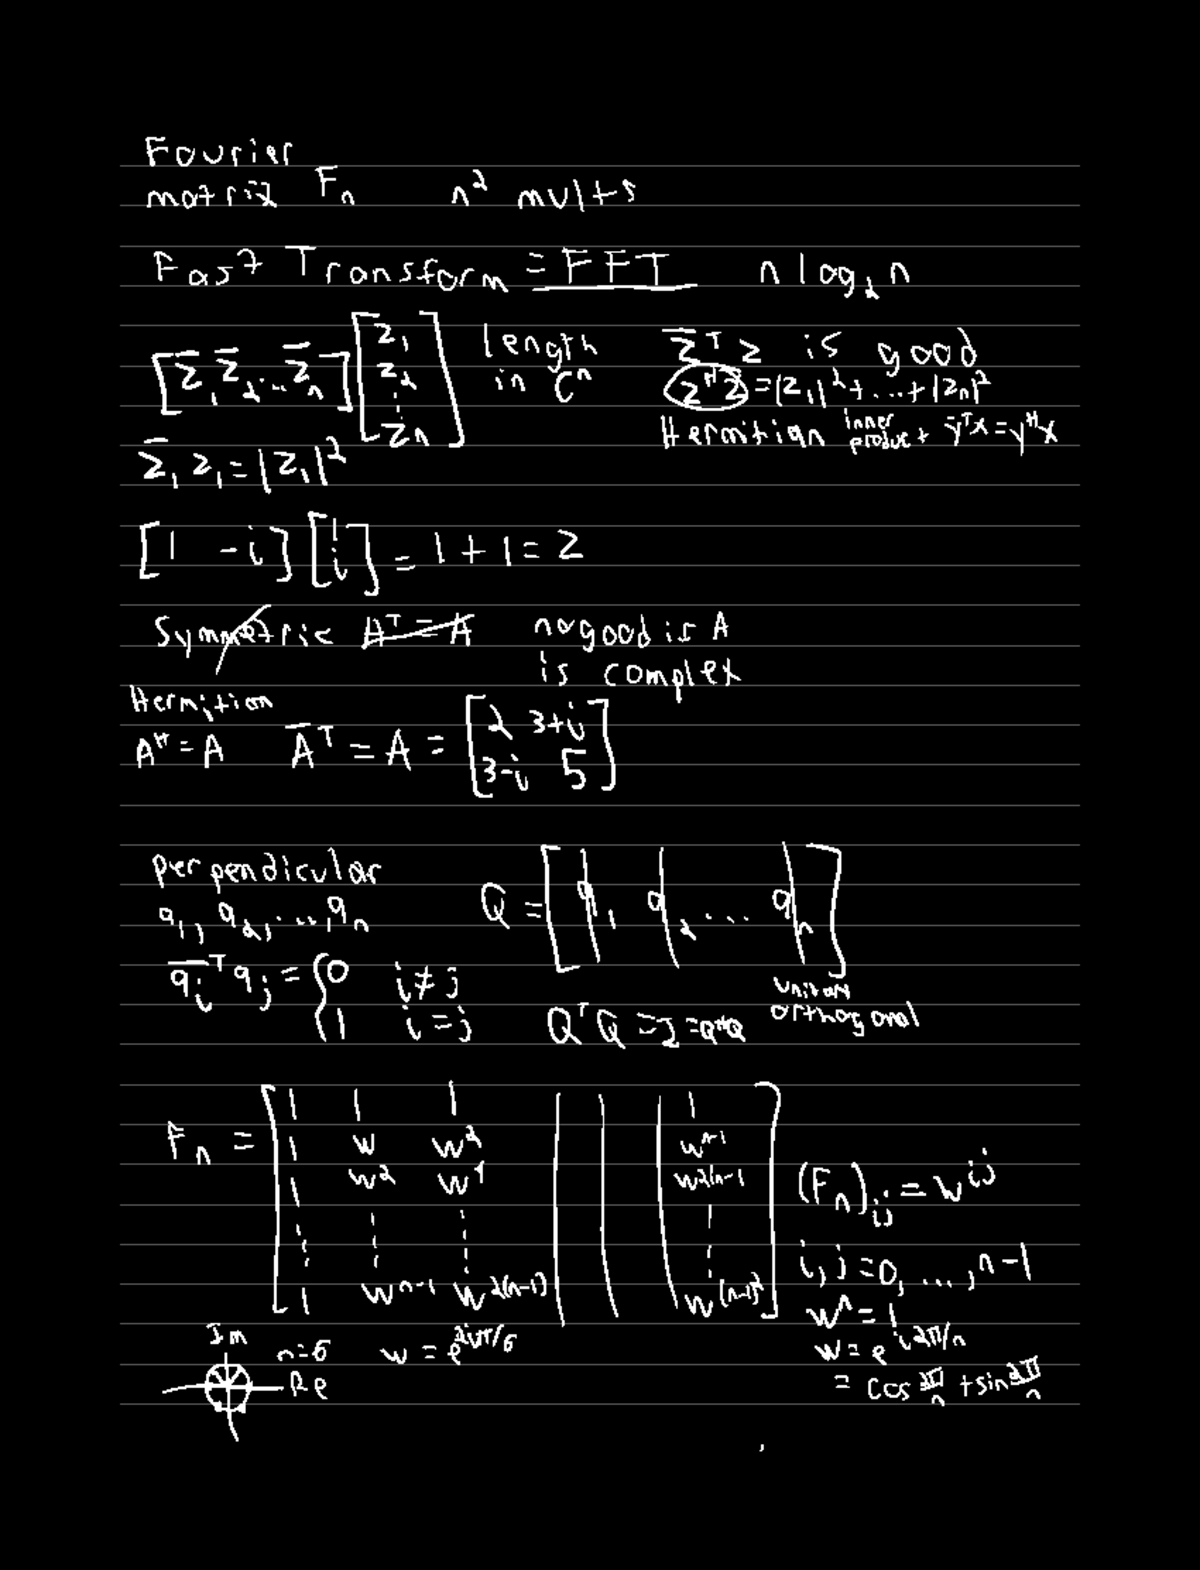 Fourier
matrix Fₙ n² mults
Fast Transform = FFT n log₂ n
[z̄₁ z̄₂ ... z̄ₙ] [z₁ z₂ ⋮ zₙ] length in Cⁿ
z̄ᵀz is good
zᴴz = |z₁|² + ... + |zₙ|²
Hermitian inner product ȳᵀx = yᴴx
z̄₁z₁ = |z₁|²
[1 -i] [1 i] = 1 + 1 = 2
Symmetric Aᵀ = A no good is A
is complex
Hermition
Aᴴ = A Āᵀ = A = [2 3+i; 3-i 5]
perpendicular
q₁, q₂, ..., qₙ Q = [q₁ q₂ ... qₙ]
q̄ᵢᵀqⱼ = {0 i ≠ j
1 i = j
QᵀQ = I = QᴴQ unitary
orthogonal
Fₙ = [1 1 1 1
1 w w² wⁿ⁻¹
1 w² w⁴ w²⁽ⁿ⁻¹
⋮ ⋮ ⋮ ⋮
1 wⁿ⁻¹ w²⁽ⁿ⁻¹⁾ w⁽ⁿ⁻¹⁾²]
(Fₙ)ᵢⱼ = wⁱʲ
i, j = 0, ..., n-1
wⁿ = 1
w = e^i2π/n
= cos 2π/n + sin 2π/n
Im
Re
n = 6 w = e^2iπ/6